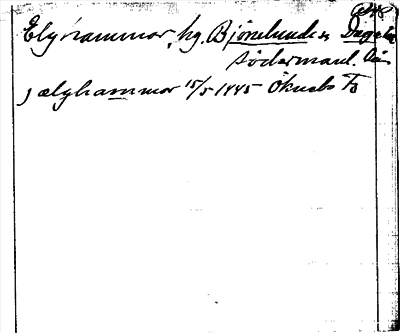 Elghammar, hg. Björnlunda sn Daga hd
Södermanl. län
j ælghammar 15/5 1445 Öknebo Fo